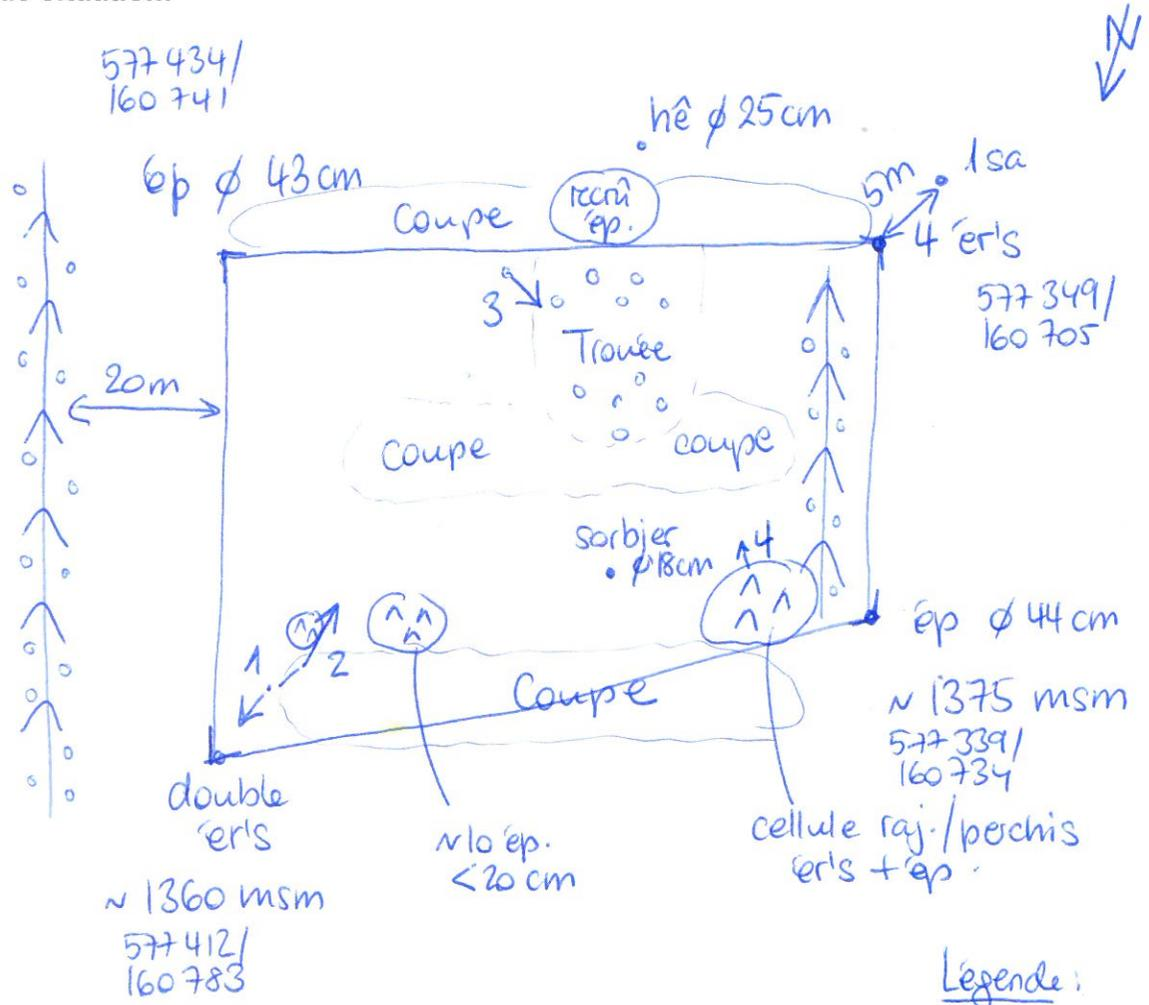 N
577 434/
160 741
hê ø 25cm
ép ø 43cm
Coupe
recrû
ép.
5m
1 sa
4 ér's
577 349/
160 705
3
Trouée
20m
Coupe
coupe
sorbier
ø 18cm
4
1
2
ép ø 44cm
Coupe
~ 1375 msm
577 339/
160 734
double
ér's
~10 ép.
<20 cm
cellule raj./perchis
ér's + ép.
~ 1360 msm
577 412/
160 783
Légende: